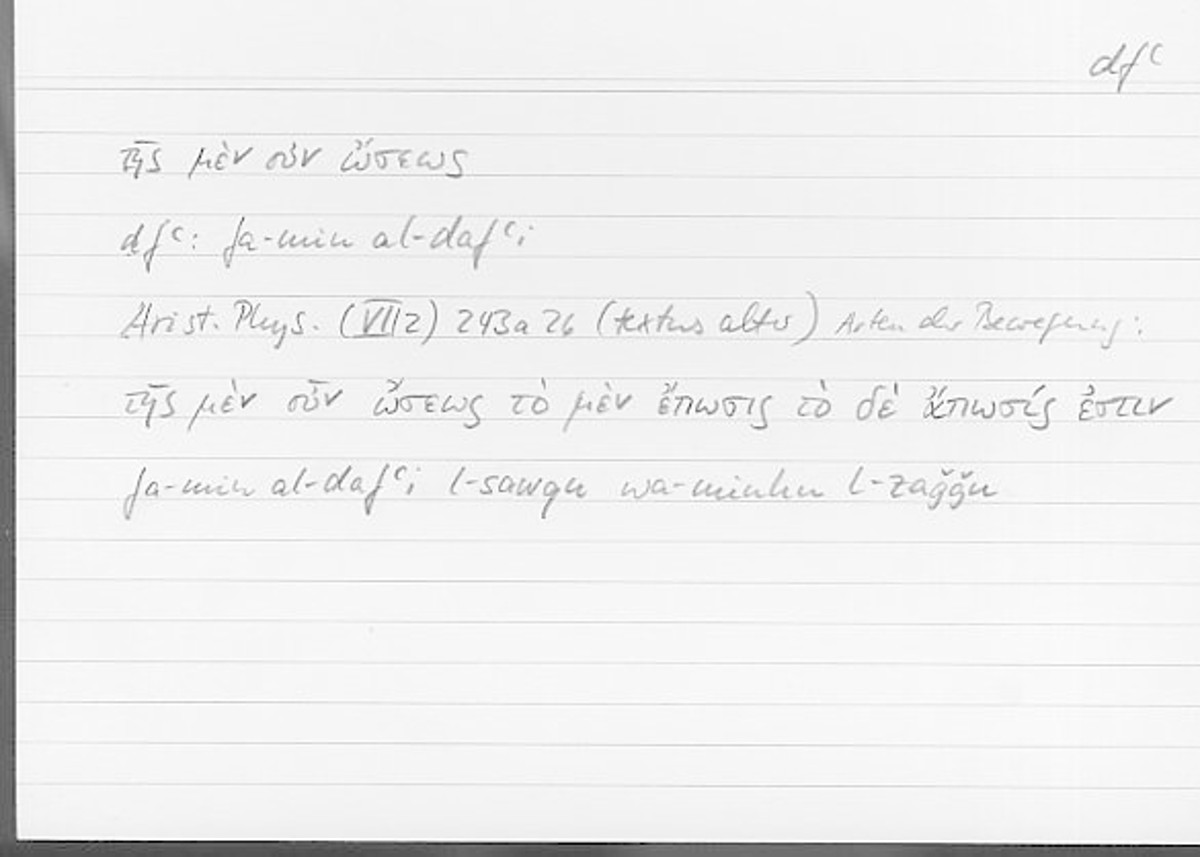 dfᶜ
τῆς μὲν οὖν ὤσεως
dfᶜ: fa-min al-dafᶜi
Arist. Phys. (VII 2) 243a26 (textus alter) Arten der Bewegung:
τῆς μὲν οὖν ὤσεως τὸ μὲν ἔπωσις τὸ δὲ ἄπωσίς ἐστιν
fa-min al-dafᶜi l-sawqu wa-minhu l-zaǧǧu